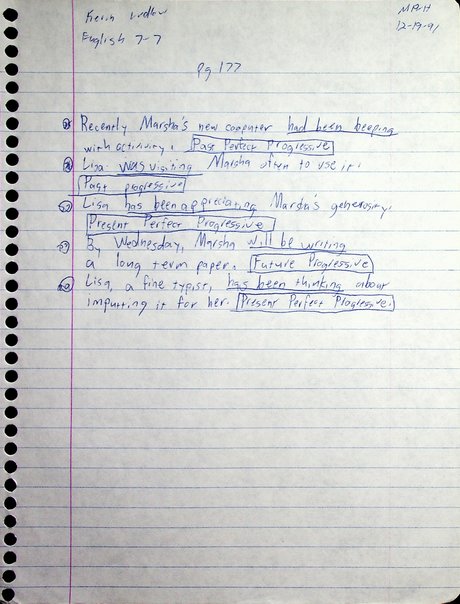 Kevin Ludlow
MR-H
English 7-7
12-19-91
Pg 177
Recently Marsha's new computer had been beeping
with activity. Past Perfect Progressive
Lisa was visiting Marsha often to use it.
Past progressive
Lisa has been appreciating Marsha's generosity.
Present Perfect Progressive
By Wednesday, Marsha will be writing
a long term paper. Future Progressive
Lisa, a fine typist, has been thinking about
imputting it for her. Present Perfect Progressive.